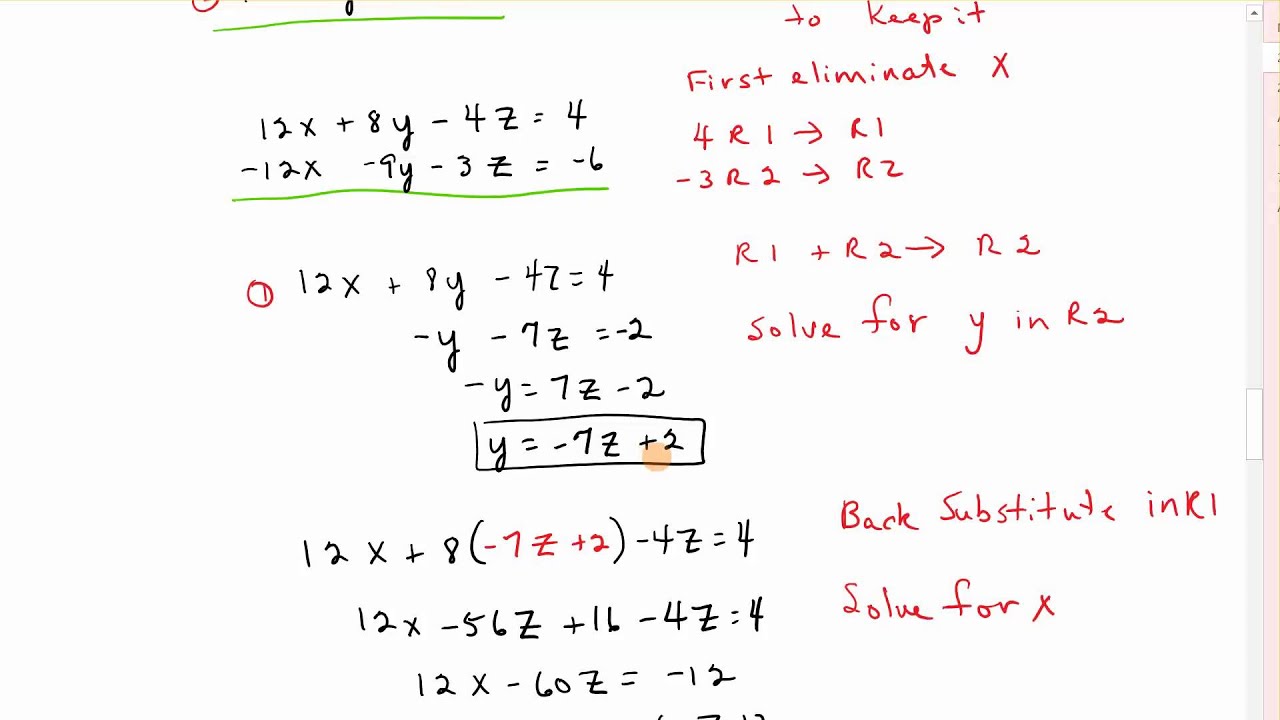 to keep it
First eliminate x
12x + 8y - 4z = 4
4 R1 → R1
-12x -9y - 3z = -6
-3 R2 → R2
R1 + R2 → R2
① 12x + 8y - 4z = 4
-y - 7z = -2
Solve for y in R2
-y = 7z - 2
y = -7z + 2
Back Substitute in R1
12x + 8(-7z +2) - 4z = 4
Solve for x
12x - 56z + 16 - 4z = 4
12x - 60z = -12